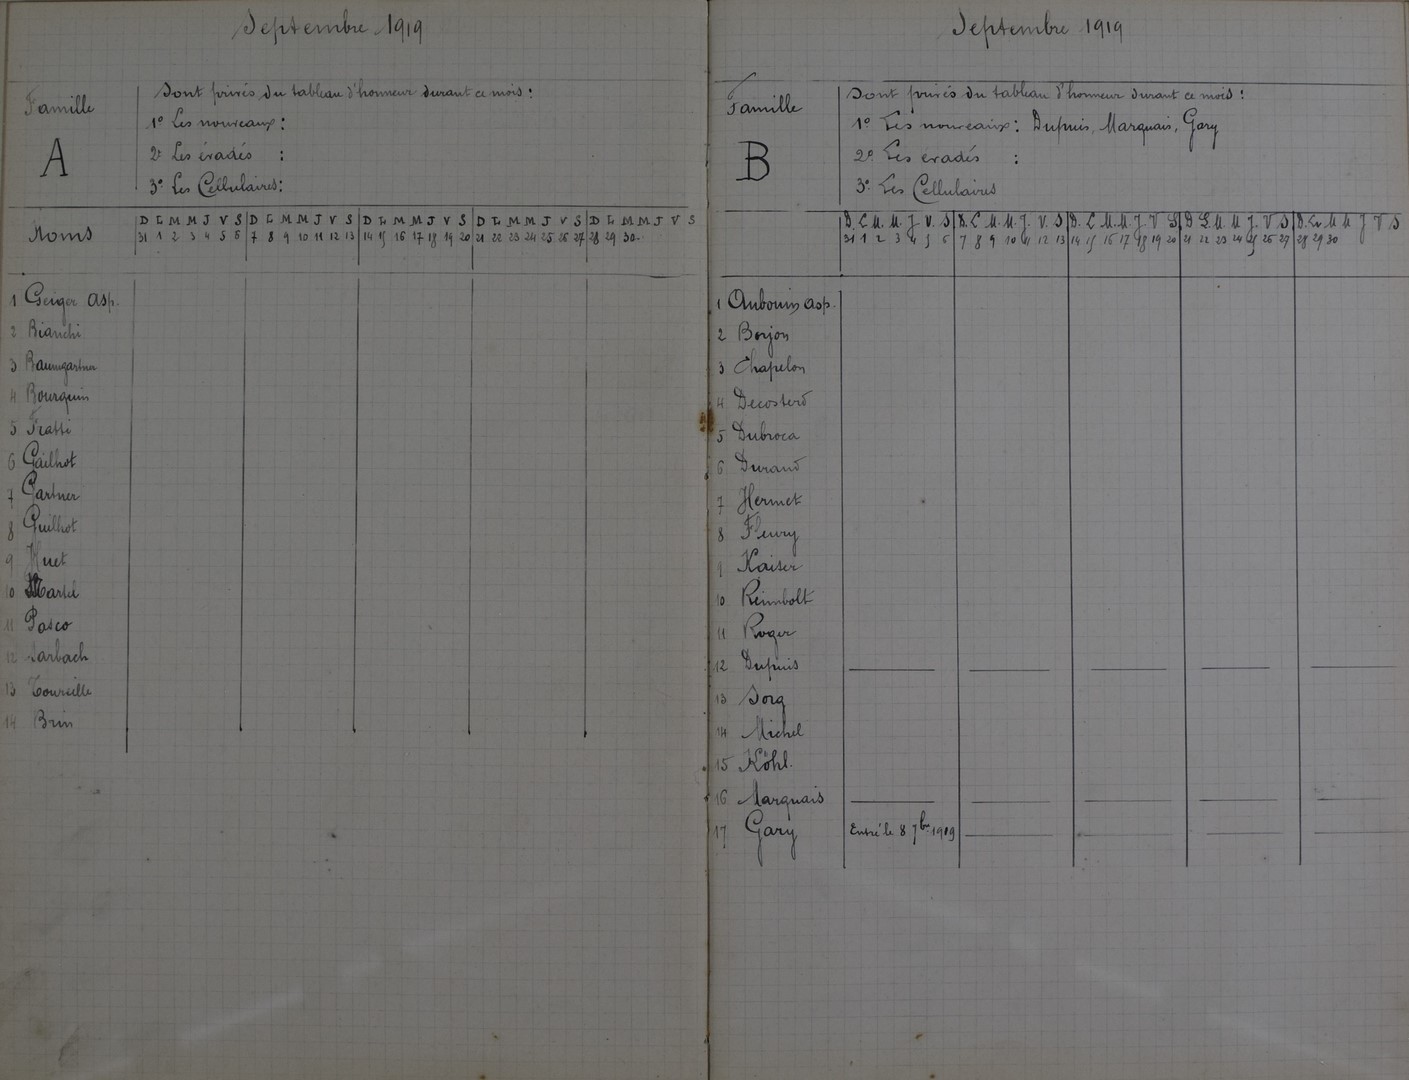 Septembre 1919
Famille
A
Sont privés du tableau d'honneur durant ce mois :
1º Les nouveaux :
2º Les évadés :
3º Les Cellulaires :
Noms
D L M M J V S D L M M J V S D L M M J V S D L M M J V S D L M M J V S
31 1 2 3 4 5 6 7 8 9 10 11 12 13 14 15 16 17 18 19 20 21 22 23 24 25 26 27 28 29 30
1 Geiger Asp.
2 Bianchi
3 Baumgartner
4 Bourquin
5 Fratti
6 Gailhot
7 Gartner
8 Guilhot
9 Huet
10 Martel
11 Pasco
12 Sarbach
13 Tourelle
14 Brin
Septembre 1919
Famille
B
Sont privés du tableau d'honneur durant ce mois :
1º Les nouveaux : Dupuis, Marquais, Gary
2º Les évadés :
3º Les Cellulaires
D. L M. M. J V. S D. L M. M. J. V. S D. L M. M. J V S D L M. M J. V S D. L M M J V S
31 1 2 3 4 5 6 7 8 9 10 11 12 13 14 15 16 17 18 19 20 21 22 23 24 25 26 27 28 29 30
1 Aubouin Asp.
2 Borjon
3 Chapelon
4 Decosterd
5 Dubroca
6 Durand
7 Hermet
8 Fleury
9 Kaiser
10 Reimbolt
11 Roger
12 Dupuis
13 Sorg
14 Michel
15 Köhl.
16 Marquais
17 Gary Entré le 8 7bre 1919